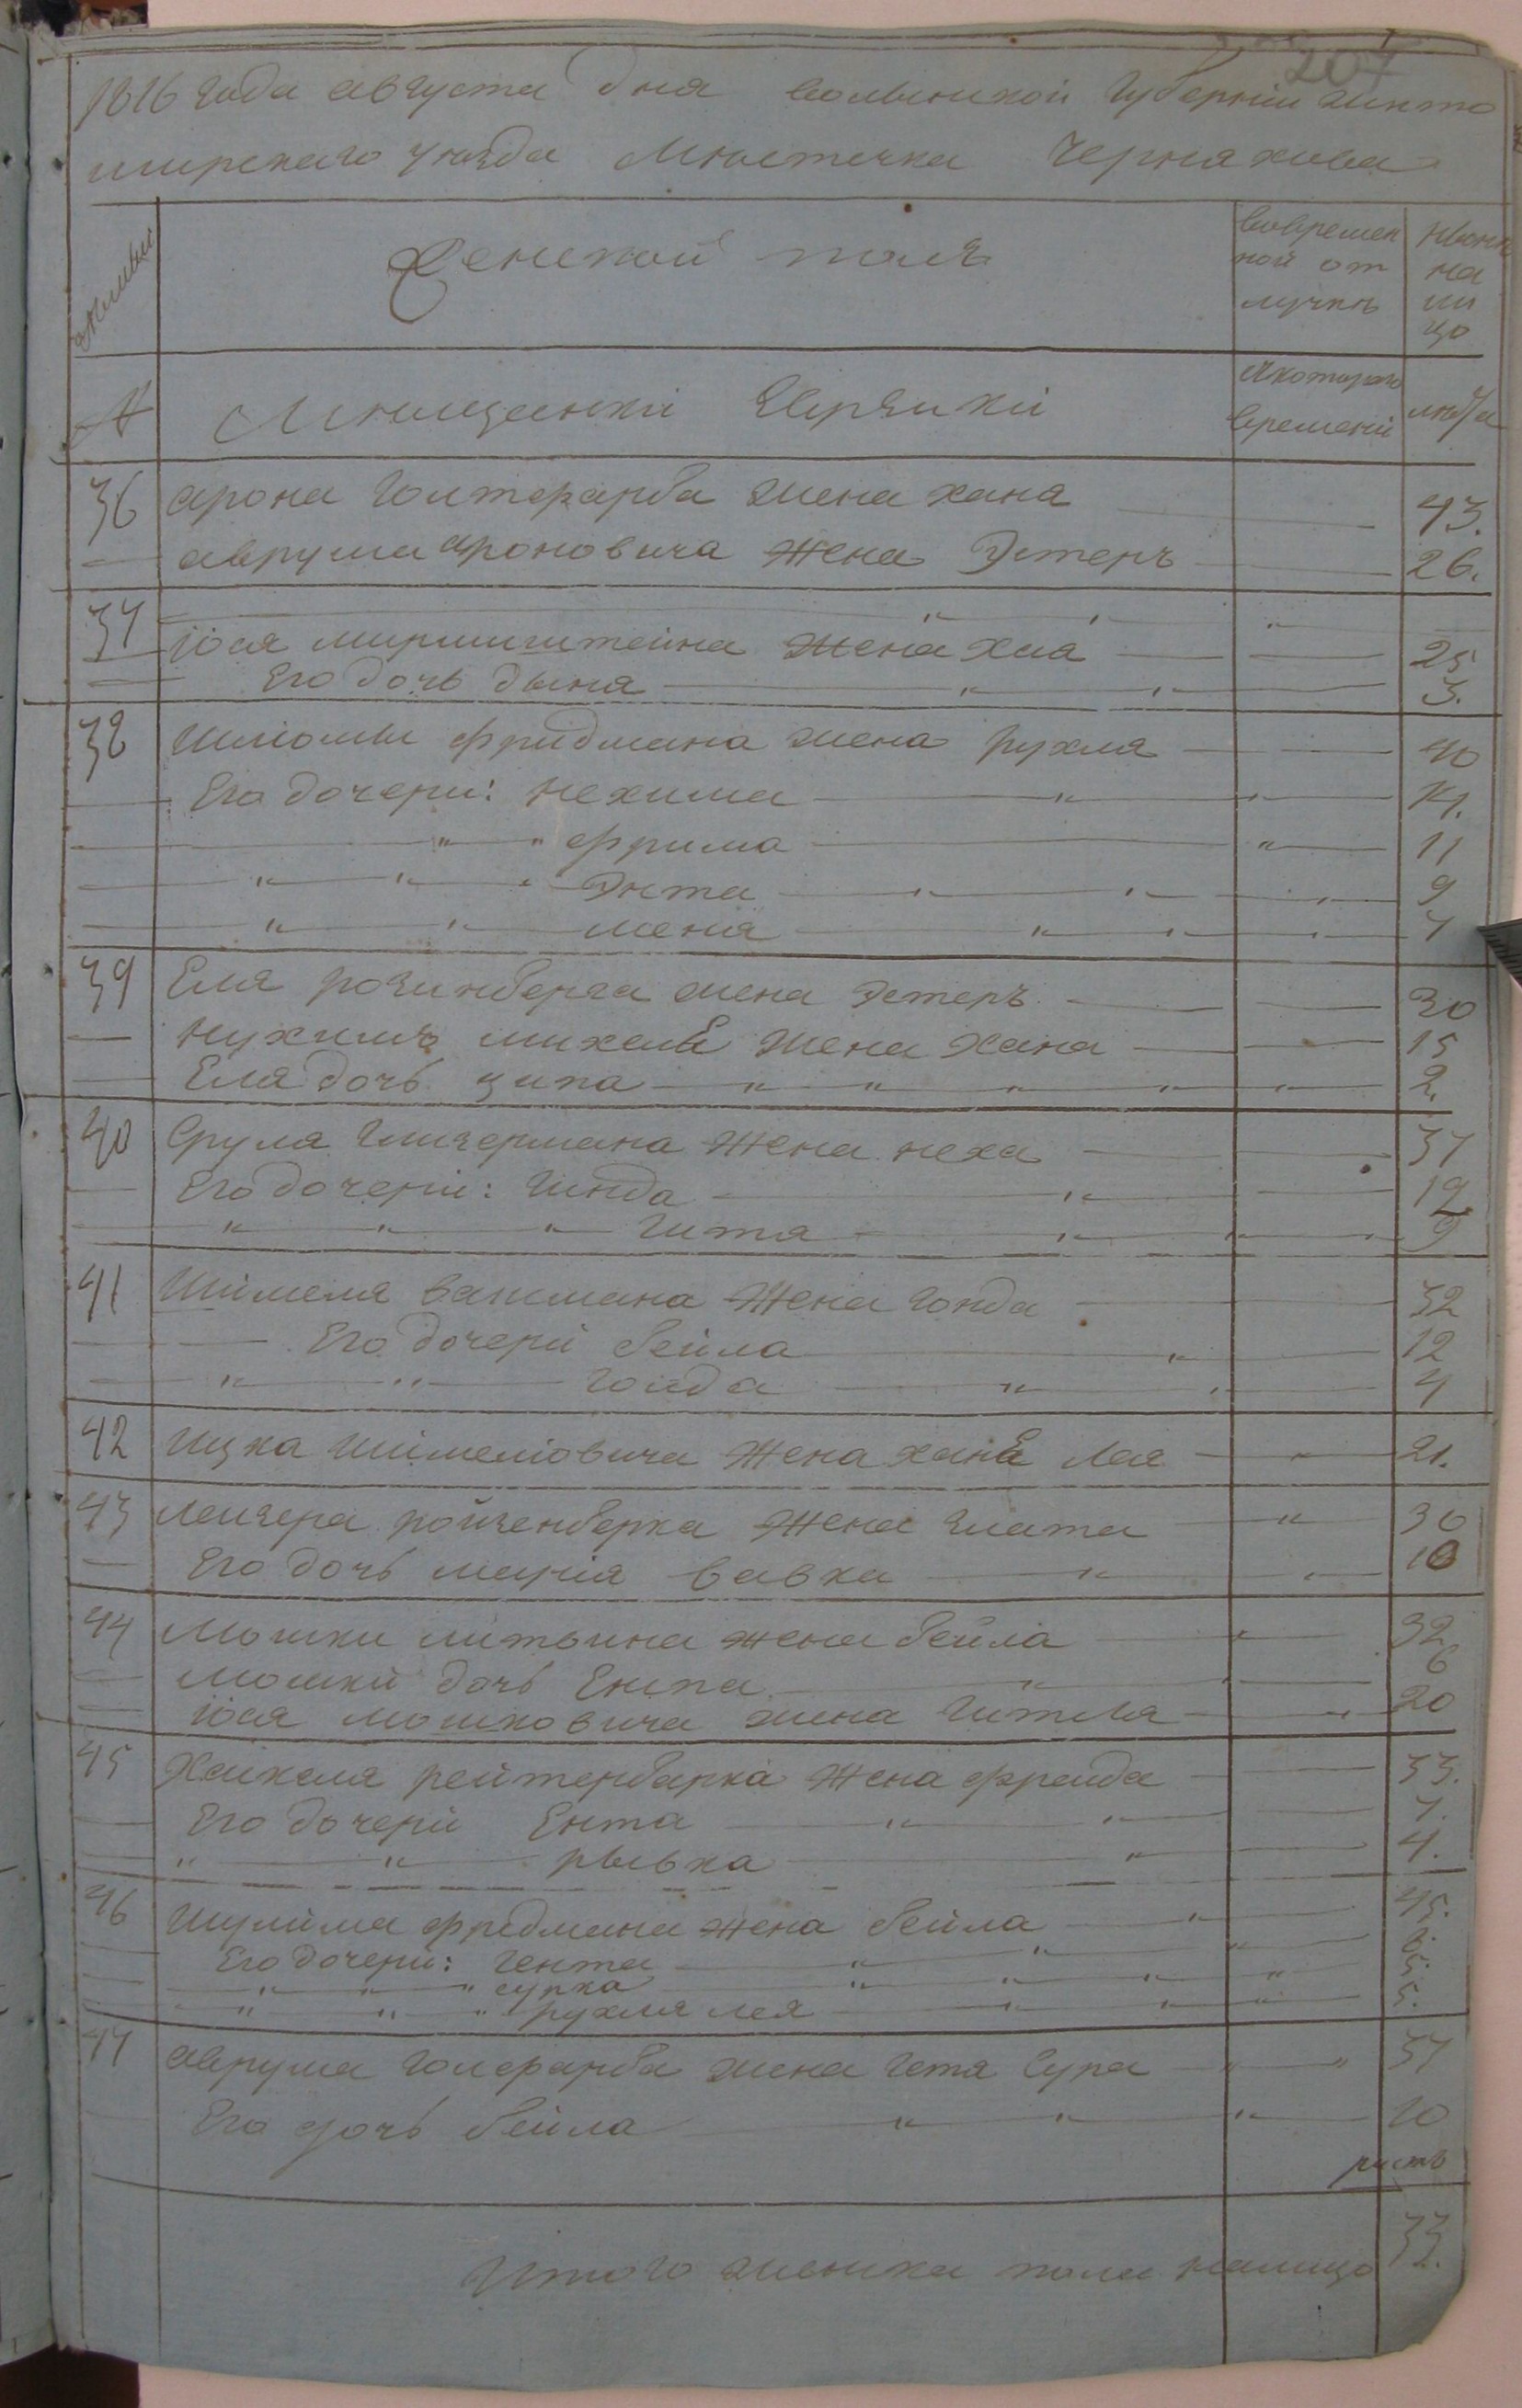 207
1816 года августа дня волынской губернiи жито
мирскаго уѣзда Мѣстечка Черняхова
Женской полъ
вовремен
ной от
лучкѣ
Нынѣ
на
ли
цо
№
Мѣщанки Еврѣики
Скотораго
времени
лѣта
36 арона Голтфарба жена хана 43.
аврума ароновича жена Эстеръ 26.
37
Iося мирминштейна жена хая 25
Его дочь дыня 3.
38 шлiомы фридмана жена рухля 40
Его дочери: нехима 14.
" " фрима 11
" " " Энта 9
" " меня 7
39 Еля розинберга жена Эстеръ 30
нухимъ михеля жена хана 15
Еля дочь ципа " " " " " 2.
40 Сруля Глизермана жена неха 37
Его дочери: Гинда " 12
" " " Гитя " " " 9
41 Шiмеля вахмана жена Гонда 32
Его дочерiи бейла " 12
" " Голда " " 4
42 ицка шiмелiовича жена ханЕ лея 21.
43 лейзера ройзенберка жена злата " 30
Его дочь марiя ривка " " 10
44 Мошки литвина жена бейла 32
мошки дочь Ента " 6
Iося мошковича жена гителя " 20
45 Хаикеля рейтербарка жена фрейда 33.
Его дочерiи Ента " " 7.
" " рывка " 4.
46 шулима фредмана жена бейла " 45.
Его дочерiи: гента " " "
" " " сурка " " " "
" " " рухля лея " " " 5.
47 аврума голфарба жена гетя сура " " 37
Его дочь бейла " " " 10
Итого женска пола налицо 33.